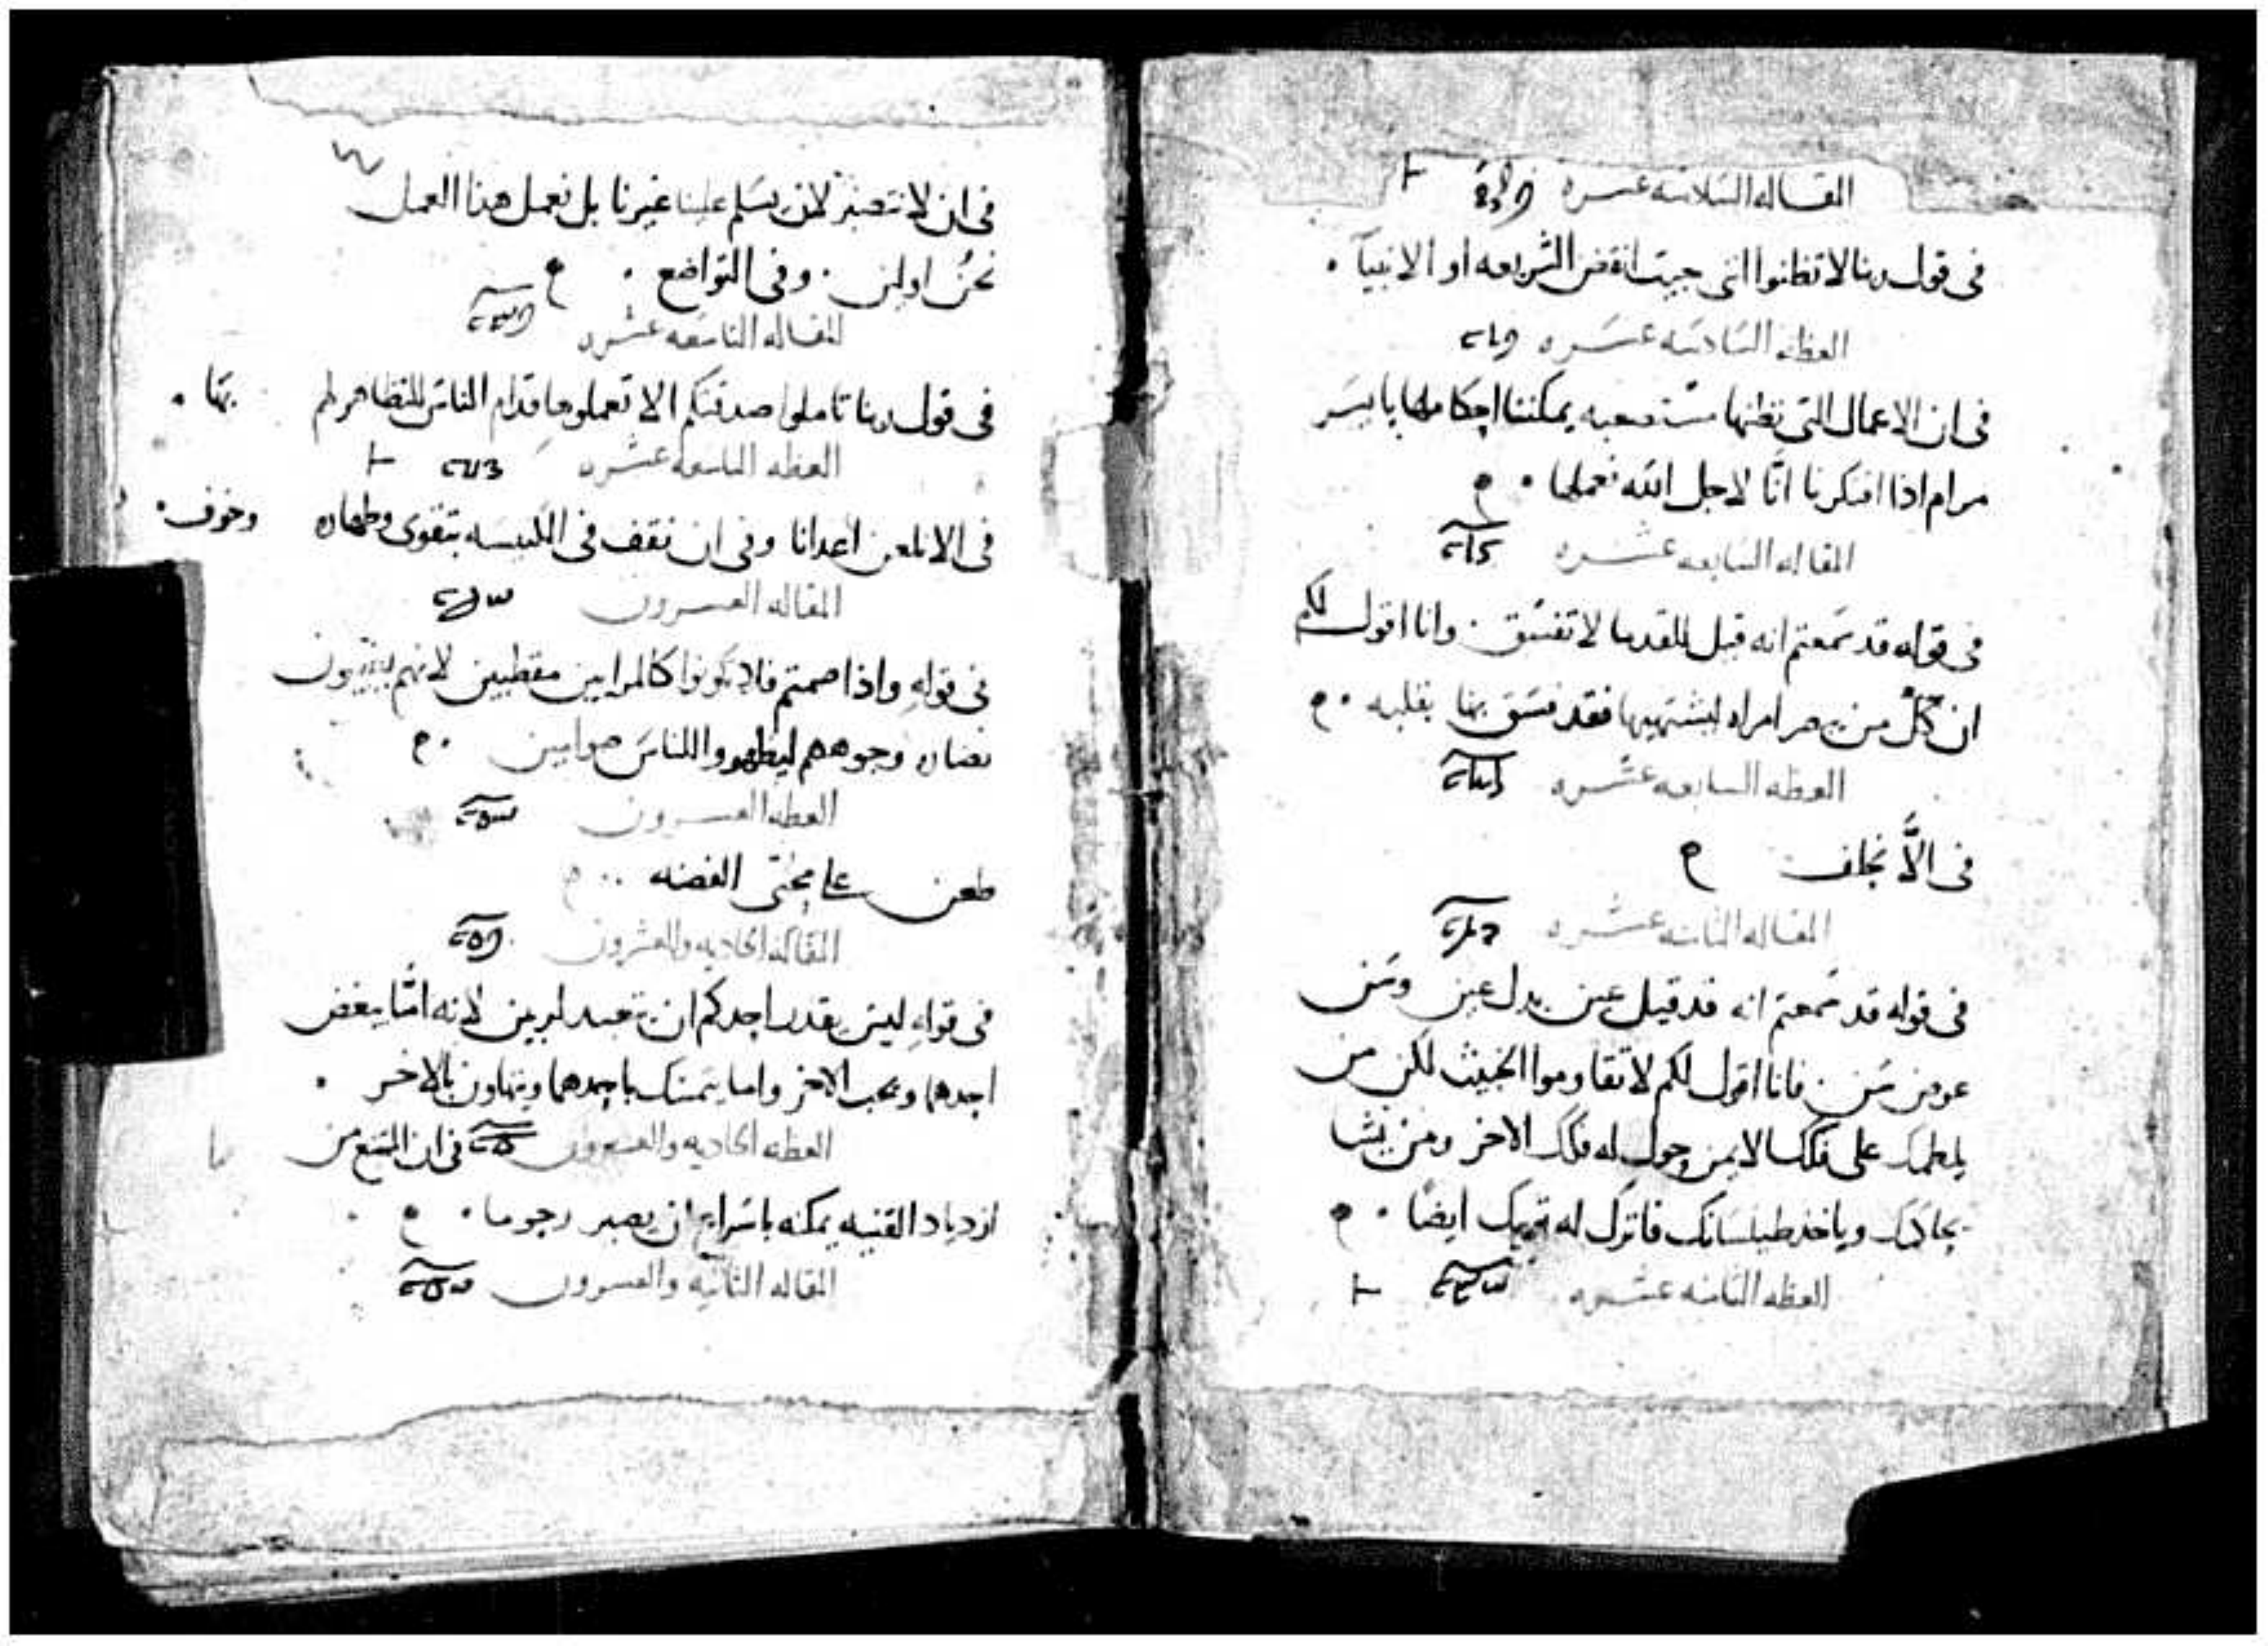 المقاله السادسه عشره
فى قول ربنا لا تظنوا انى جيت انقض الشريعه او الانبيا .
العظه السادسه عشره
فى ان الاعمال التى نظنها مستصعبه يمكننا احكامها بايسر
مرام اذا افتكرنا انَّا لاجل الله نعملها .
المقاله السابعه عشره
فى قوله قد سمعتم انه قيل للقدما لا تفسق . وانا اقول لكم
ان كلّ من يبصر امراه ليشتهيها فقد فسق بها بقلبه .
العظه السابعه عشره
فى الَّا نحلف
المقاله الثامنه عشره
فى قوله قد سمعتم انه قد قيل عين بدل عين وسن
عوض سن . فانا اقول لكم لا تقاوموا الخبيث لكن من
يلطمك على فكك الايمن حول له فكك الاخر ومن يشا
يحاكمك وياخذ طيلسانك فاترك له قميصك ايضًا .
العظه الثامنه عشره
فى ان لا ننتصر لان يسلم علينا غيرنا بل نعمل هذا العمل
نحنُ اولين . وفى التواضع .
المقاله التاسعه عشره
فى قول ربنا تاملوا صدقتكم الا تعملوها قدام الناس للتظاهر لهم بها .
العظه التاسعه عشره
فى الا نلعن اعدانا وفى ان نقف فى الكنيسه بتقوى وطهاره وخوف .
المقاله العشرون
فى قولهِ واذا صمتم فلا تكونوا كالمرايين مقطبين لانهم يغيرون
نضاره وجوههم ليظهروا للناس صوامين .
العظه العشرون
طعن على محبى الفضه ..
المقاله الحاديه والعشرون
فى قولهِ ليس يقدر احدكم ان يتعبد لربين لانه امَّا يبغض
احدهما ويحب الاخر واما يتمسك باحدهما ويتهاون بالاخر .
العظه الحاديه والعشرون فى ان الممتنع من
ازدياد القنيه يمكنه باسراع ان يصير رحوما .
المقاله الثانيه والعشرون